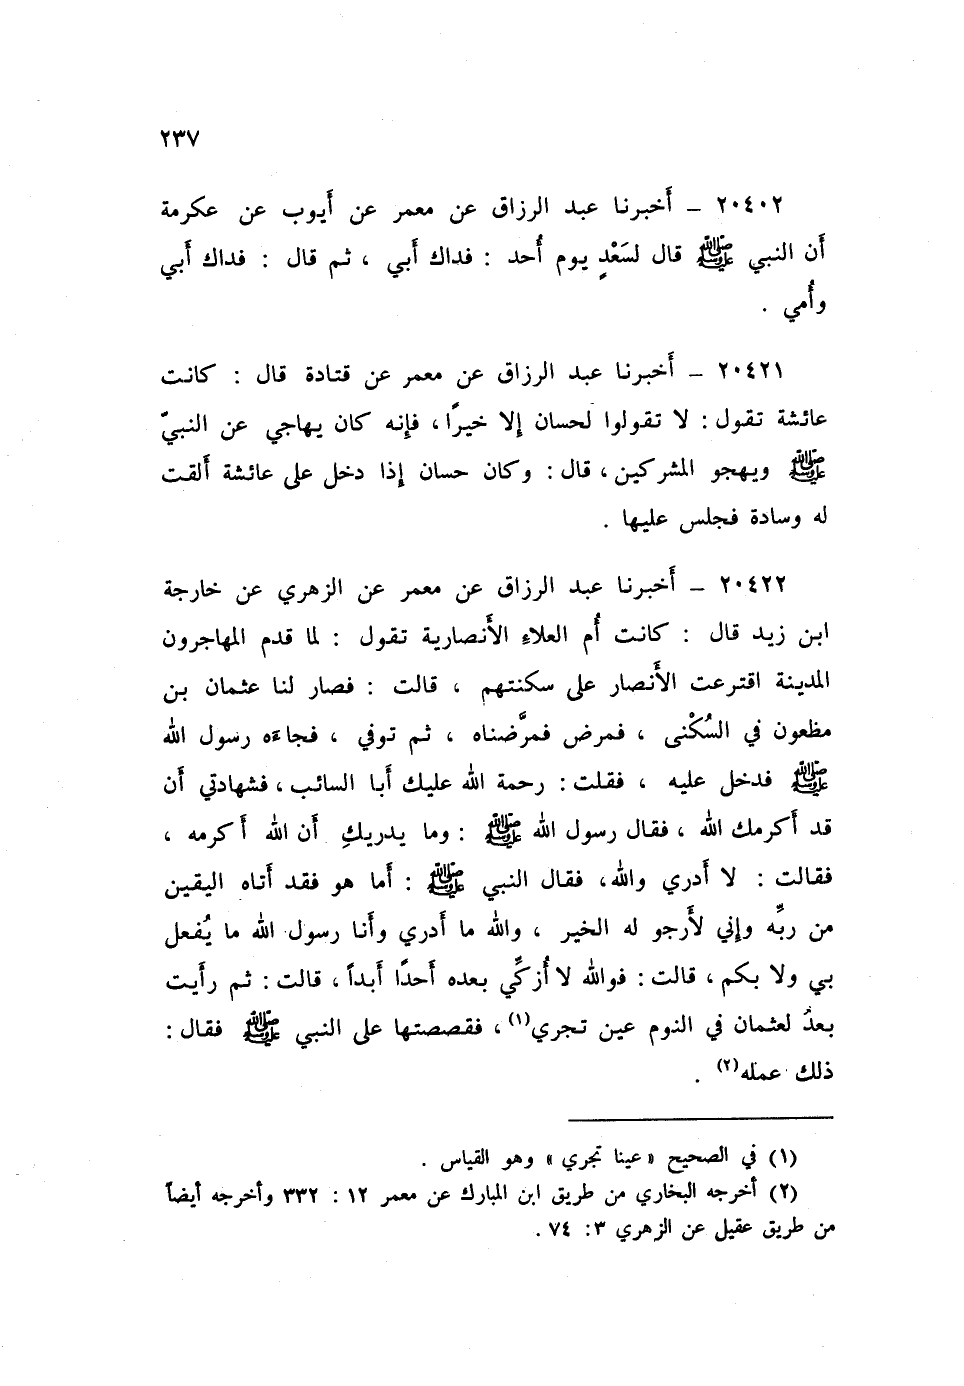 ٢٣٧
٢٠٤٠٢ ـ أَخبرنا عبد الرزاق عن معمر عن أَيوب عن عكرمة
أَن النبي ﷺ قال لسَعْدٍ يوم أُحد : فداك أَبي ، ثم قال : فداك أَبي
وأُمي .
٢٠٤٢١ ـ أَخبرنا عبد الرزاق عن معمر عن قتادة قال : كانت
عائشة تقول : لا تقولوا لحسان إِلا خيرًا ، فإِنه كان يهاجي عن النبيّ
ﷺ ويهجو المشركين ، قال : وكان حسان إِذا دخل على عائشة أَلقت
له وسادة فجلس عليها .
٢٠٤٢٢ ـ أَخبرنا عبد الرزاق عن معمر عن الزهري عن خارجة
ابن زيد قال : كانت أُم العلاءِ الأَنصارية تقول : لما قدم المهاجرون
المدينة اقترعت الأَنصار على سكنتهم ، قالت : فصار لنا عثمان بن
مظعون في السُكْنى ، فمرض فمرَّضناه ، ثم توفي ، فجاءه رسول الله
ﷺ فدخل عليه ، فقلت : رحمة الله عليك أَبا السائب ، فشهادتي أَن
قد أَكرمك الله ، فقال رسول الله ﷺ : وما يدريكِ أَن الله أَكرمه ،
فقالت : لا أَدري والله ، فقال النبي ﷺ : أَما هو فقد أَتاه اليقين
من ربِّه وإِني لأَرجو له الخير ، والله ما أَدري وأَنا رسول الله ما يُفعل
بي ولا بكم ، قالت : فوالله لا أُزكِّي بعده أَحدًا أَبداً ، قالت : ثم رأَيت
بعدُ لعثمان في النوم عين تجري(١) ، فقصصتها على النبي ﷺ فقال :
ذلك عمله(٢) .
(١) في الصحيح «عينا تجري» وهو القياس .
(٢) أخرجه البخاري من طريق ابن المبارك عن معمر ١٢ : ٣٣٢ وأخرجه أيضاً
من طريق عقيل عن الزهري ٣ : ٧٤ .